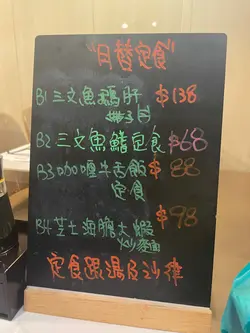 "日替定食"
B1 三文魚鵝肝 $138
B2 三文魚鰭定食 $68
B3 咖喱牛舌飯 $88
定食
B4 芝士海膽大蝦 $98
炒烏冬
定食跟湯及沙律